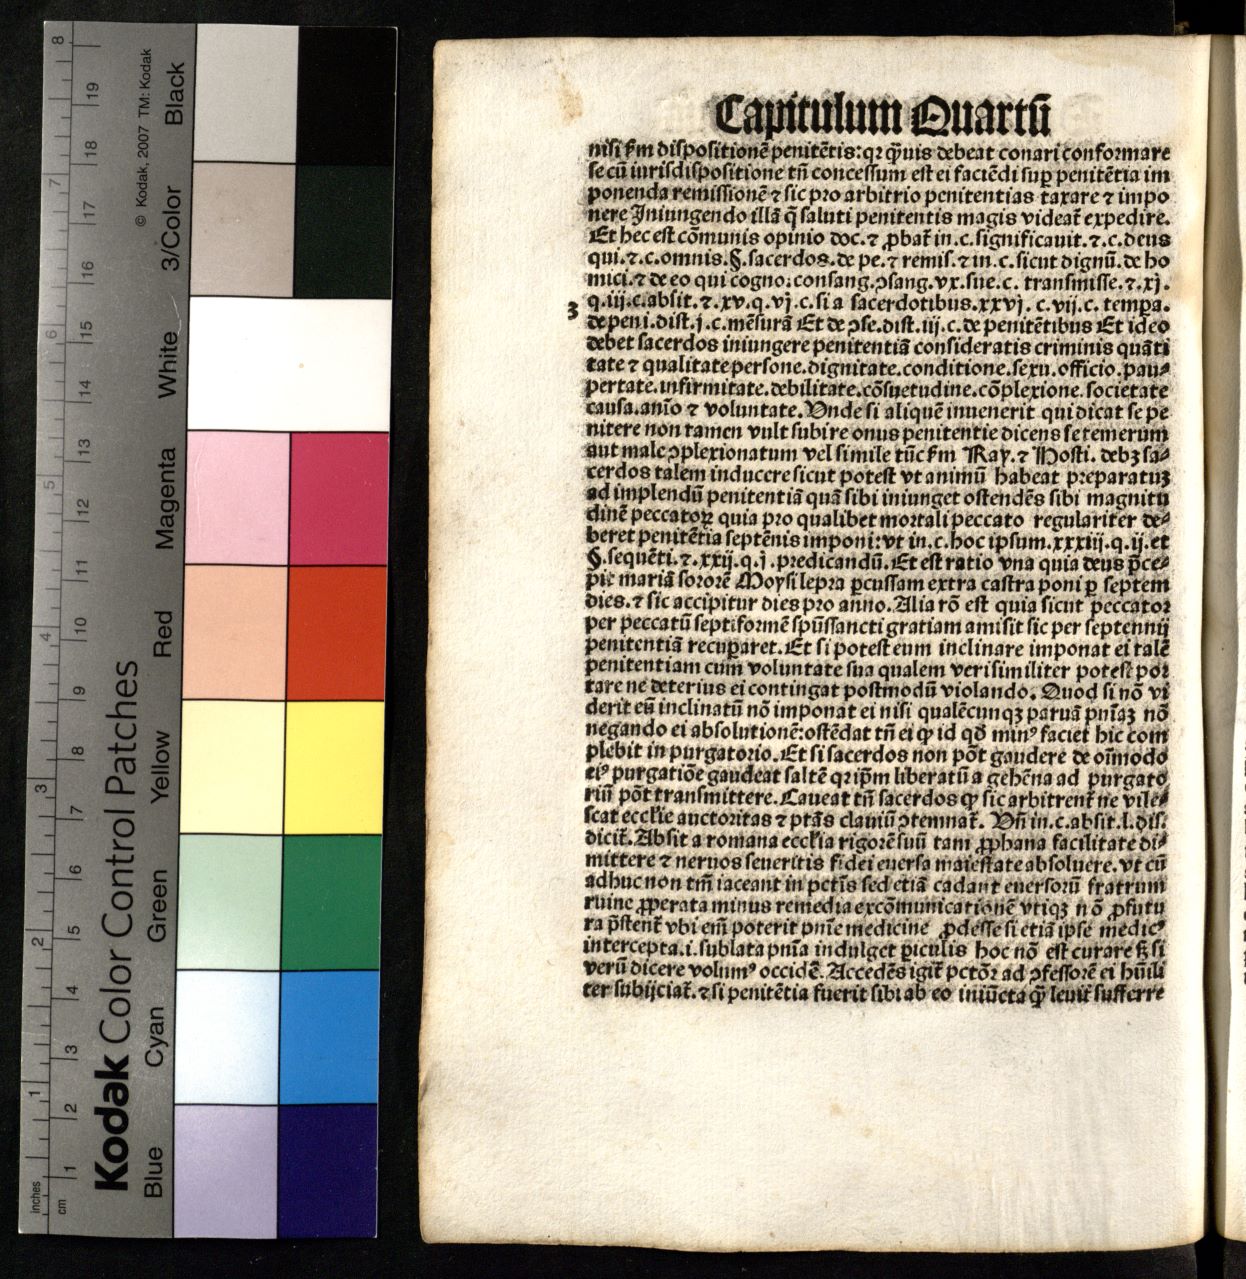 Capitulum Quartū
nisi ẜm dispositionē penitētis: qꝛ q̄uis debeat conari conformare
se cū iurisdispositione tn̄ concessum est ei faciēdi suꝑ penitētia im
ponenda remissionē ⁊ sic pro arbitrio penitentias taxare ⁊ impo
nere Iniungendo illā q̄ saluti penitentis magis videat̄ expedire.
Et hec est cōmunis opinio doc. ⁊ ꝓbat̄ in .c. significauit. ⁊ .c. deus
qui. ⁊ .c. omnis. §. sacerdos. de pe. ⁊ remis. ⁊ in .c. sicut dignū. de ho
mici. ⁊ de eo qui cogno: consang. ɔsang. vx. sue .c. transmisse. ⁊ .xj.
q. iij. c. absit. ⁊ .xv. q. vj. c. si a sacerdotibus. xxvj. c. vij. c. tempa.
3
de peni. dist. j. c. mēsurā Et de ɔse. dist. iij. c. de penitētibus Et ideo
debet sacerdos iniungere penitentiā consideratis criminis quāti
tate ⁊ qualitate persone. dignitate. conditione. sexu. officio. pau⸗
pertate. infirmitate. debilitate. cōsuetudine. cōplexione. societate
causa. anīo ⁊ voluntate. Unde si aliquē inuenerit qui dicat se pe
nitere non tamen vult subire onus penitentie dicens se temerum
aut male ɔplexionatum vel simile tūc ẜm Ray. ⁊ Hosti. debꝫ sa⸗
cerdos talem inducere sicut potest vt animū habeat preparatuꝫ
ad implendū penitentiā quā sibi iniunget ostendēs sibi magnitu
dinē peccatoꝝ quia pro qualibet mortali peccato regulariter de⸗
beret penitētia septēnis imponi: vt in .c. hoc ipsum. xxxiij. q. ij. et
§. sequēti. ⁊ .xxij. q. j. predicandū. Et est ratio vna quia deus p̄ce⸗
pit mariā sororē Moysi lepra ꝑcussam extra castra poni ꝑ septem
dies. ⁊ sic accipitur dies pro anno. Alia rō est quia sicut peccator
per peccatū septiformē spūssancti gratiam amisit sic per septennij
penitentiā recuꝑaret. Et si potest eum inclinare imponat ei talē
penitentiam cum voluntate sua qualem verisimiliter potest por
tare ne deterius ei contingat postmodū violando. Quod si nō vi
derit eū inclinatū nō imponat ei nisi qualēcunqꝫ paruā pn̄iaꝫ nō
negando ei absolutionē: ostēdat tn̄ ei ꝙ id qd̄ minꝰ faciet hic com
plebit in purgatorio. Et si sacerdos non pōt gaudere de oīmodo
eiꝰ purgatiōe gaudeat saltē qꝛ ip̄m liberatū a gehēna ad purgato
riū pōt transmittere. Caueat tn̄ sacerdos ꝙ sic arbitrent̄ ne vile⸗
scat eccłie auctoritas ⁊ ptās clauiū ɔtemnat̄. Un̄ in .c. absit. l. dis.
dicit̄. Absit a romana eccłia rigorē suū tam ꝓphana facilitate di⸗
mittere ⁊ neruos seueritis fidei euersa maiestate absoluere. vt cū
adhuc non tm̄ iaceant in pctīs sed etiā cadant euersorū fratrum
ruine ꝓperata minus remedia excōmunicationē vtiqꝫ nō ꝓfutu
ra p̄stent̄ vbi em̄ poterit pn̄ie medicine ꝓdesse si etiā ipse medicꝰ
intercepta .i. sublata pn̄ia indulget ꝑiculis hoc nō est curare ẜꝫ si
verū dicere volumꝰ occidē̄. Accedēs igit̄ pctōr ad ɔfessorē ei hūili
ter subijciat̄. ⁊ si penitētia fuerit sibi ab eo iniūcta q̄ leuit̄ sufferre
8
19
18
7
17
16
6
15
14
13
5
12
11
4
10
9
3
8
7
6
2
5
4
3
1
2
1
inches
cm
© Kodak, 2007 TM: Kodak
Kodak Color Control Patches
Blue Cyan Green Yellow Red Magenta White 3/Color Black